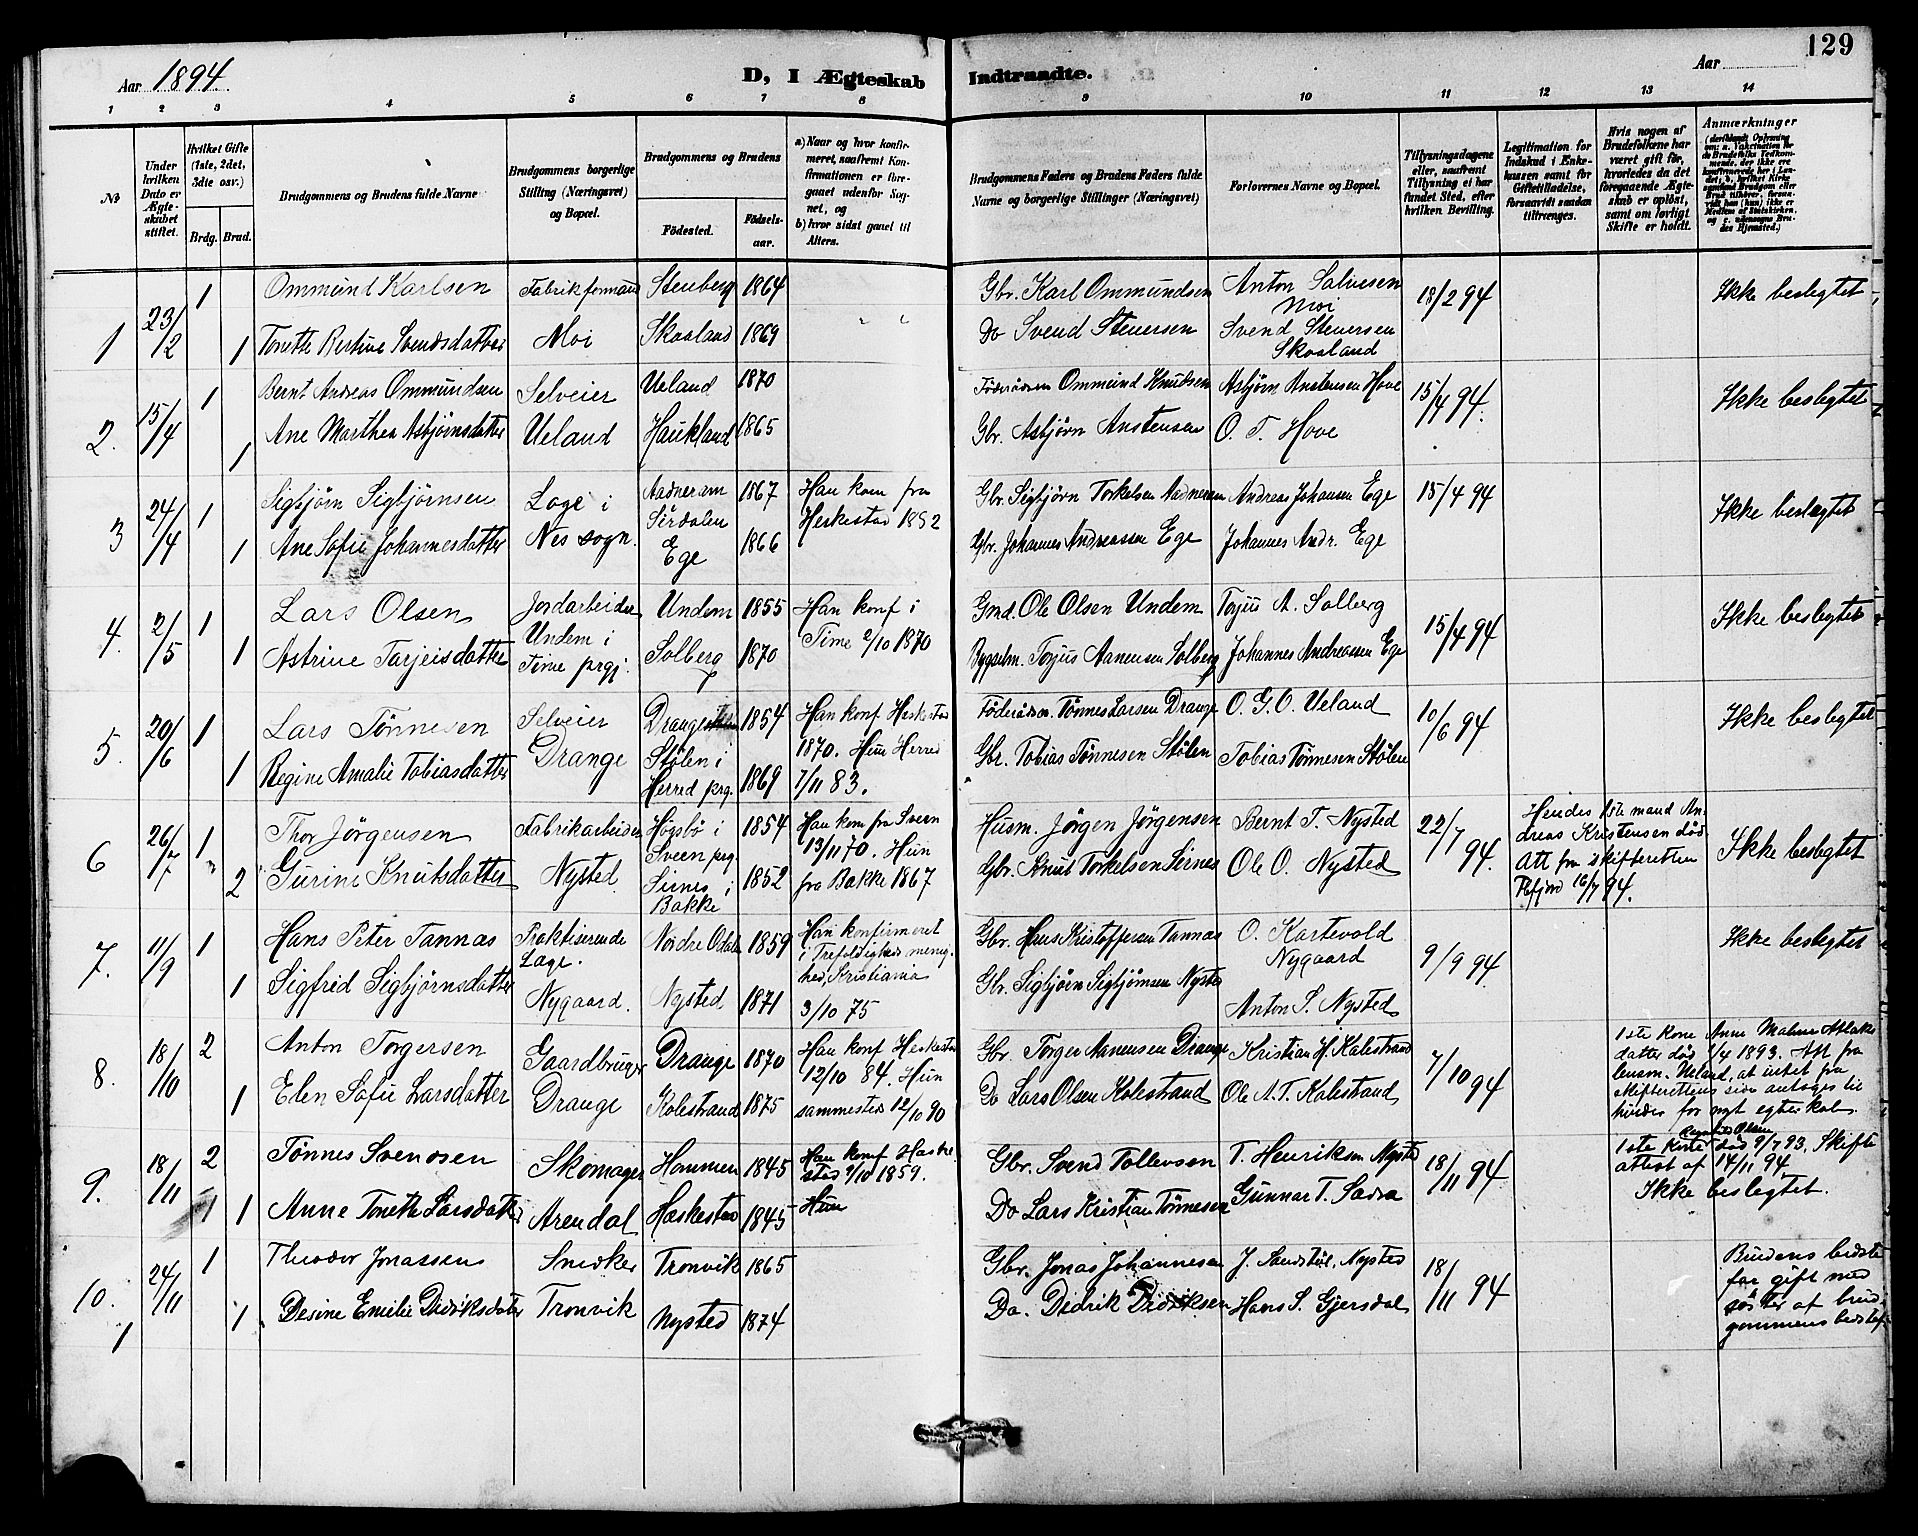 129
Aar 1894.
D, I Ægteskab Indtraadte.
Aar
1 2 3 4 5 6 7 8 9 10 11 12 13 14
№
Under hvilken Dato er Ægteskabet stiftet.
Hvilket Gifte (1ste, 2det, 3die osv.)
Brdg. Brud.
Brudgommens og Brudens fulde Navne
Brudgommens borgerlige Stilling (Næringsvei) og Bopæl.
Brudgommens og Brudens
Födested. Födselsaar.
a) Naar og hvor konfirmeret, saafremt Konfirmationen er foregaaet udenfor Sognet, og
b) hvor sidst gaaet til Alters.
Brudgommens Faders og Brudens Faders fulde Navne og borgerlige Stillinger (Næringsvei)
Forlovernes Navne og Bopæl.
Tillysningsdagene eller, saafremt Tillysning ei har fundet Sted, efter hvilken Bevilling.
Legitimation for Indskud i Enkekassen samt for Giftetilladelse, forsaavidt saadan tiltrænges.
Hvis nogen af Brudefolkene har været gift för, hvorledes da det foregaaende Ægteskab er oplöst, samt om lovligt Skifte er holdt.
Anmærkninger
1 23/2 1 Ommund Karlsen Fabrikformand Stenberg 1864 Gbr. Karl Ommundsen Anton Salvesen Moi 18/2 94 Ikke beslegtet
1 Tonette Bertine Svendsdatter Moi Skaaland 1869 " " Do Svend Stenersen Svend Stenersen Skaaland
2. 15/4 1 Bernt Andreas Ommundsen Selveier Ueland 1870 Föderaadsm Ommund Knudsen Asbjørn Anstensen Hove 15/4 94. Ikke beslegtet
1 Ane Marthea Asbjørnsdatter Ueland Haukland 1865 Gbr. Asbjørn Anstensen O. T. Hove
3 24/4 1 Sigbjørn Sigbjørnsen Loge i Aadneram Sirdalen 1867 Han kom fra Heskestad 1892 Gbr. Sigbjørn Torkelsen Aadneram Andreas Johansen Ege 15/4 94 Ikke beslægtet
1 Ane Sofie Johannesdatter Nes sogn. Ege 1866 Gbr. Johannes Andreassen Ege Johannes Andr. Ege
4. 2/5 1 Lars Olsen Jordarbeider Undem 1855 Han konf i Time 2/10 1870 Gmd. Ole Olsen Undem Torjus A. Solberg 15/4 94 Ikke beslegtet
1 Astrine Tarjeisdatter Undem i Time prgj. Solberg 1870 Bygselm. Torjus Aanensen Solberg Johannes Andreassen Ege
5. 20/6 1 Lars Tönnesen Selveier Drange 1854 Han konf Heskestad 1870. Hun Herred 7/11 83. Föderaadsm. Tönnes Larsen Drange O. G. O. Ueland 10/6 94 Ikke beslegtet
1 Regine Amalie Tobiasdatter Drange Stølen i Herred prg. 1869 Gbr. Tobias Tönnesen Stølen Tobias Tönnesen Stølen
6 26/7 1 Thor Jörgensen Fabrikarbeider Høgsbö i Sveen prg. 1854 Han kom fra Sveen 13/11 70. Hun fra Bakke 1867 Husm. Jörgen Jörgensen Bernt T. Nysted 22/7 94. Hendes 1ste mand Andreas Kristensen död. Att fra skifteretten 16/7 94. Ikke beslegtet
2 Gurine Knutsdatter Nysted Sirnes i Bakke 1852 Gbr. Knut Torkelsen Sirnes Ole O. Nysted
7. 11/9 1 Hans Peter Tannas Praktiserende Læge. Nordre Odalen 1859 Han konfirmeret i Trefoldigheds menighed, Kristiania 3/10 75 Gbr. Hans Kristoffersen Tannas O. Kartevold Nygaard 9/9 94 Ikke beslegtet
1 Sigfred Sigbjørnsdatter Nygaard. Nysted 1871 Gbr. Sigbjørn Sigbjørnsen Nysted Anton S. Nysted
8. 18/10 2 Anton Torgersen Gaardbruger Drange 1870 Han konf Heskestad 12/10 84. Hun sammesteds 12/10 90 Gbr. Torger Aanensen Drange Kristian H. Kalestrand 7/10 94 1ste Kone Anne Malene Atlaksdatter död 1/4 1893. Att fra lensm. Ueland, at intet fra skifterettens side antages til hinder for nyt egteskab.
1 Elen Sofie Larsdatter Drange Kolestrand 1875 Do Lars Olsen Kolestrand Ole A. T. Kalestrand
9. 18/11 2 Tönnes Svendsen Skomager Hommen 1845 Han konf Heskestad 9/10 1859. Gbr. Svend Tollevsen T. Henriksen Nysted 18/11 94 1ste Kone död 9/7 93. Skifteattest af 14/11 94. Ikke beslegtet.
1 1 Anne Tonette Larsdatter Arendal Heskestad 1845 Hun Do Lars Kristian Tönnesen Gunnar T. Sædra
10. 24/11 1 Theodor Jonassen Snedker Tronvik 1865 Gbr. Jonas Johannesen J. Sandstøl, Nysted 18/11 94 Brudens bedstefar gift med söster af brudgommens bedstef.
1 1 Desine Emelie Didriksdatter Tronvik Nysted 1874 Do. Didrik Didriksen Hans S. Gjersdal